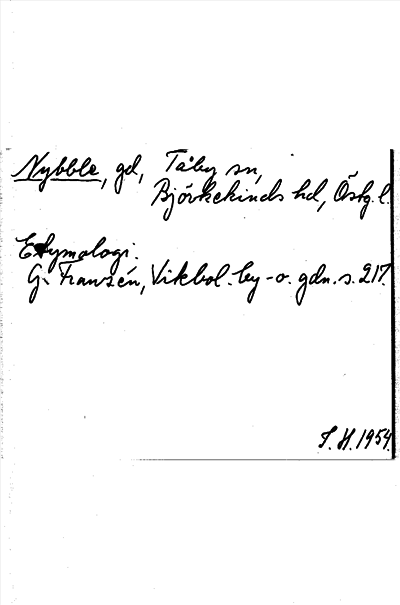 Nybble, gd, Tåby sn,
Björkekinds hd, Östg. l.
Etymologi.
G. Franzén, Vikbol. by-o. gdn. s. 217.
S. H. 1954.